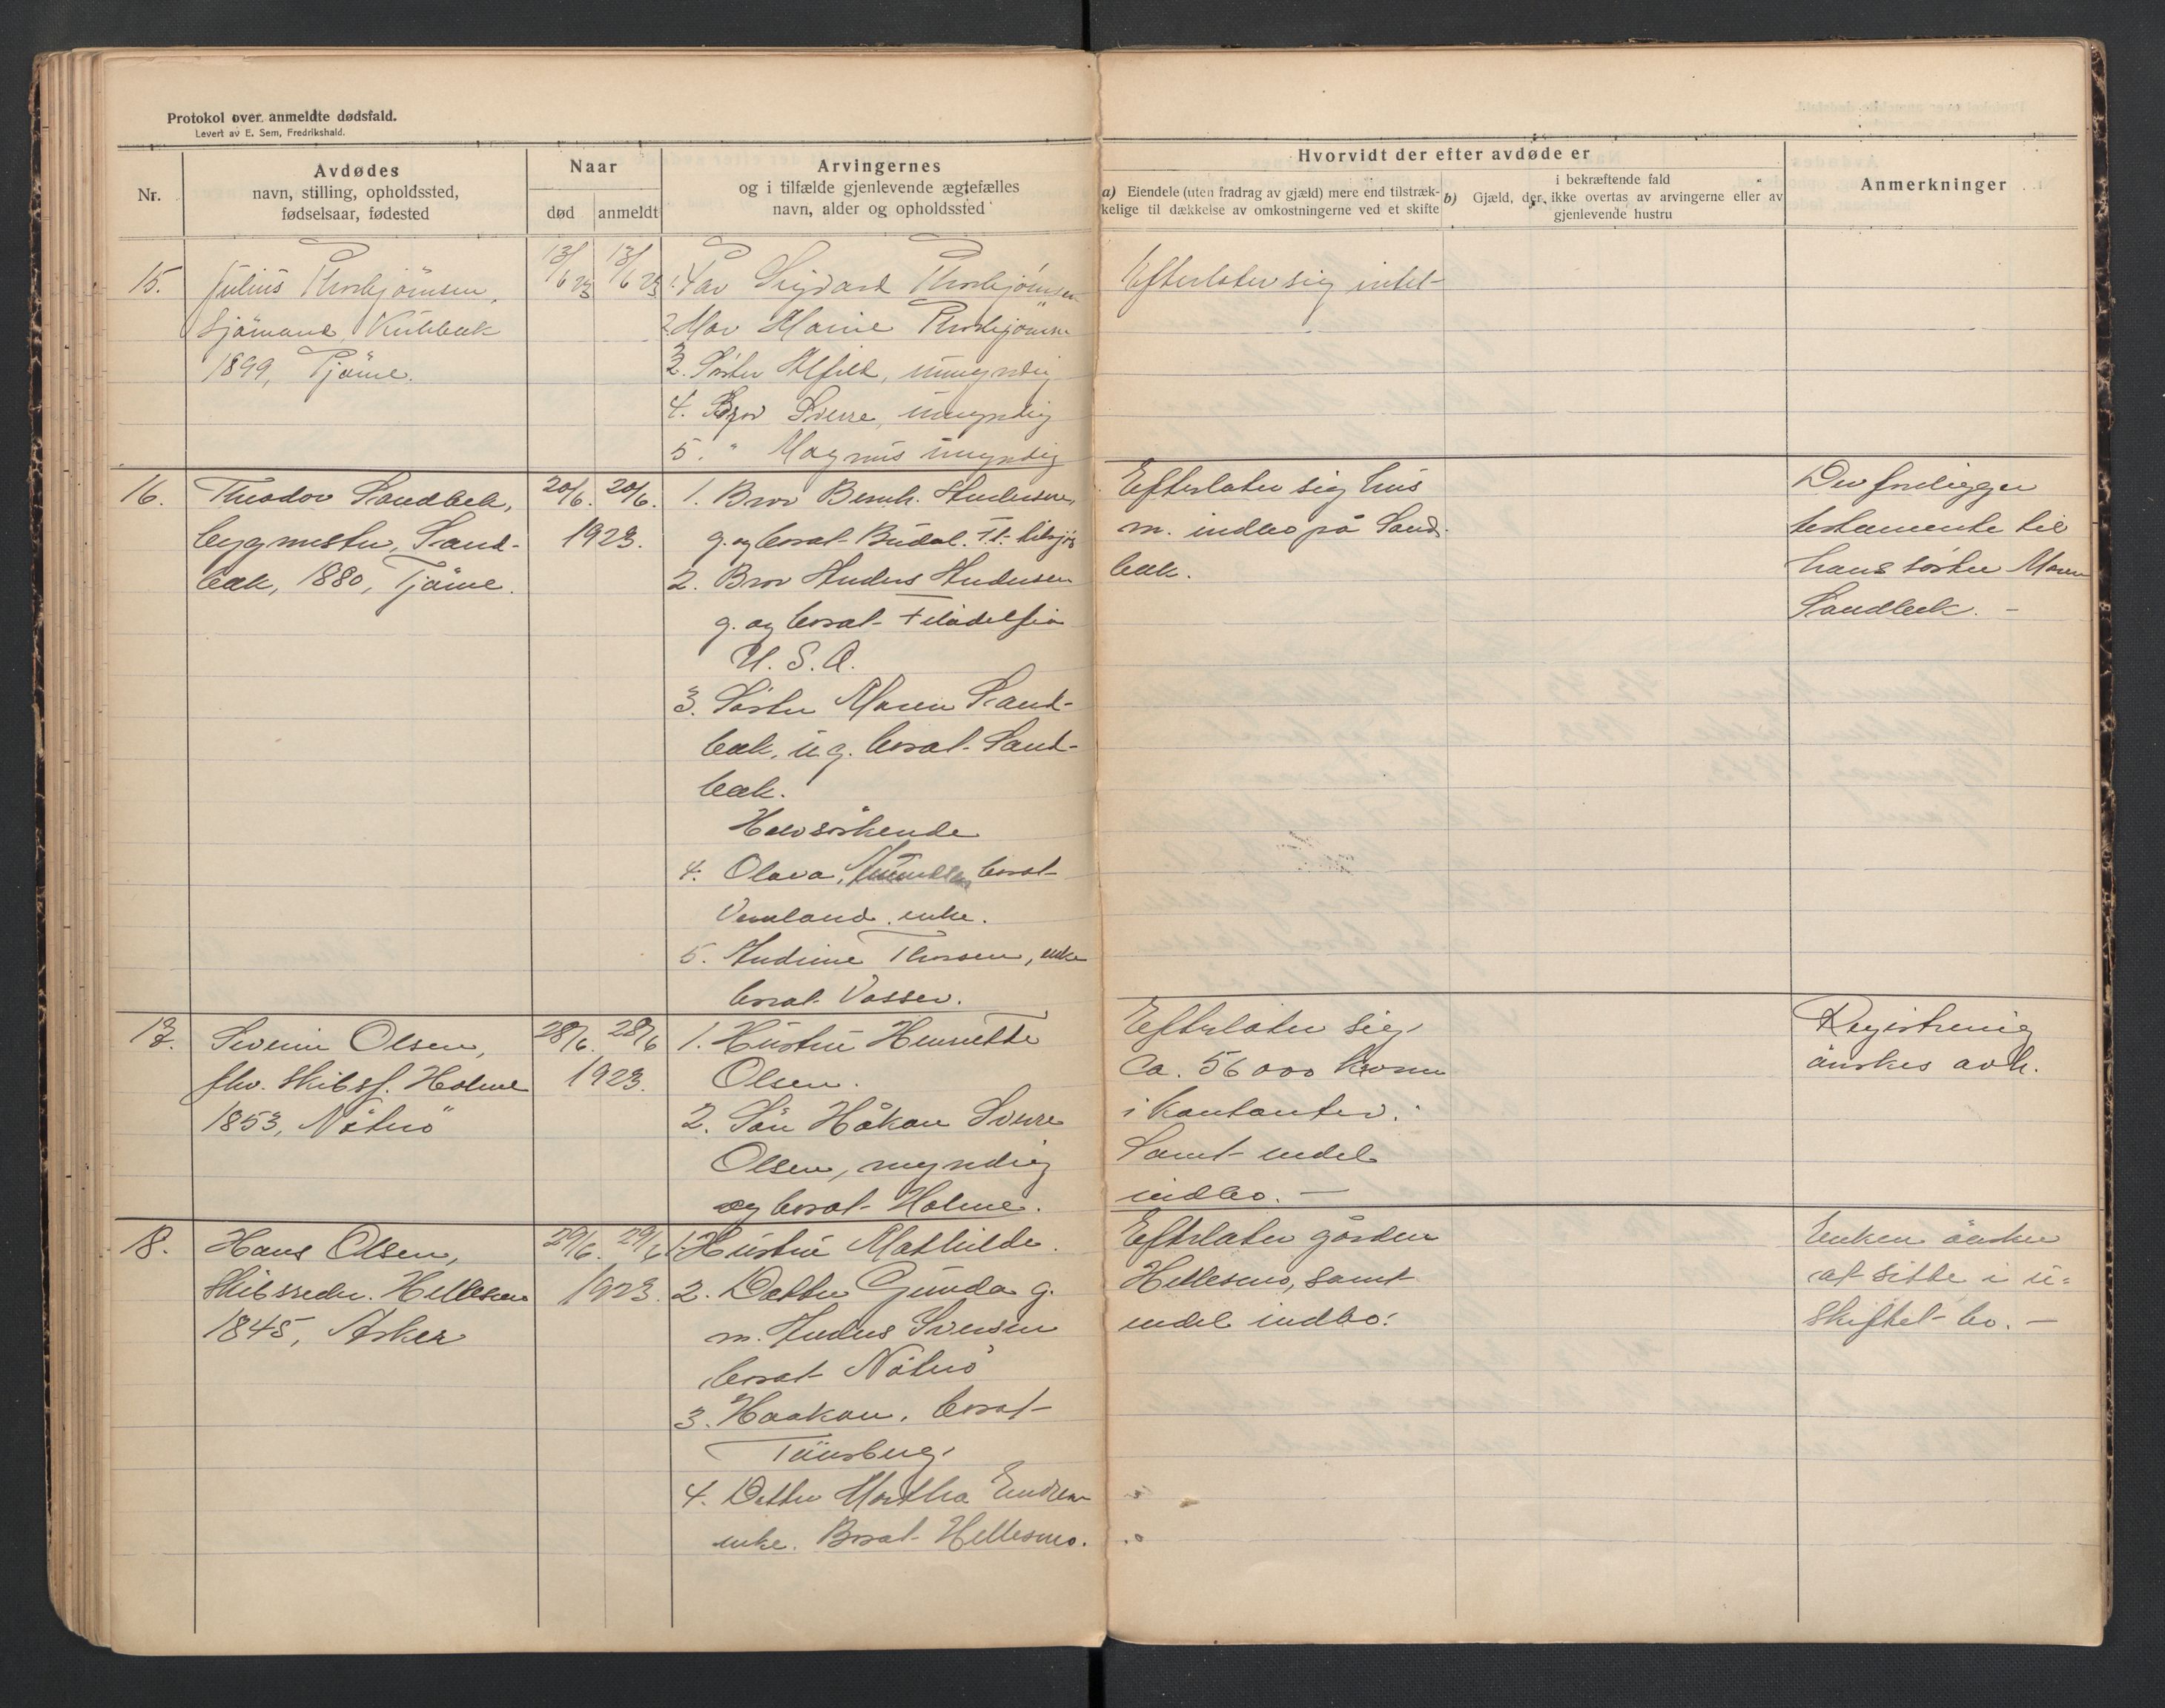 Protokol over anmeldte dødsfald.
Levert av E. Sem, Fredrikshald.
Nr.
Avdødes
navn, stilling, opholdssted,
fødselsaar, fødested
Naar
død
anmeldt
Arvingernes
og i tilfælde gjenlevende ægtefælles
navn, alder og opholdssted
Hvorvidt der efter avdøde er
a) Eiendele (uten fradrag av gjæld) mere end tilstræk-
kelige til dækkelse av omkostningerne ved et skifte
i bekræftende fald
b) Gjæld, der ikke overtas av arvingerne eller av
gjenlevende hustru
Anmerkninger
15.
Julius Thorbjörnsen,
Sjömand,
1899, Tjöme.
13/6 23
13/6 23
1. Far Sigvard Thorbjörnsen
2. Mor Marie Thorbjörnsen
3. Söster Alfild, umyndig
4. Bror Sverre, umyndig
5. " Magnus umyndig
Efterlater sig intet
16.
Theodor Sandbek,
bygmester, Sand-
bæk, 1880, Tjöme.
20/6. 20/6.
1923.
1. Bror Bernh. Andersen,
g. og bosat
2. Bror Anders Andersen
g. og bosat Filadelfia
U. S. A.
3. Söster Maren Sand-
bæk, ug. bosat Sand-
bæk.
Halvsöskende
4. Olava, bosat
enke.
5. Andrine Thorsen, enke
bosat Vasser.
Efterlater sig hus
m. indbo på Sand-
bæk.
Der foreligger
testamente til
hans söster Maren
Sandbek. -
17.
Severin Olsen,
fhv. Skibsf. Holme
1853, Nötterö
28/6. 28/6
1923.
1. Hustru Henriette
Olsen.
2. Sön Håkon Sverre
Olsen, myndig
og bosat Holme.
Efterlater sig
ca. 56000 kroner
i kontanter.
Samt endel
indbo. -
Registrering
önskes avh.
18.
Hans Olsen,
Skibsreder. Hellesmo
1845, Asker
29/6. 29/6
1923.
1. Hustru Mathilde.
2. Datter Gunda g.
m. Anders Svensen
bosat Nötterö
3. Haakon, bosat
Tönsberg.
4. Datter Martha Endresen
enke. Bosat Hellesmo.
Efterlater gården
Hellesmo, samt
endel indbo.
Enken önsker
at sitte i u-
skiftet bo. -